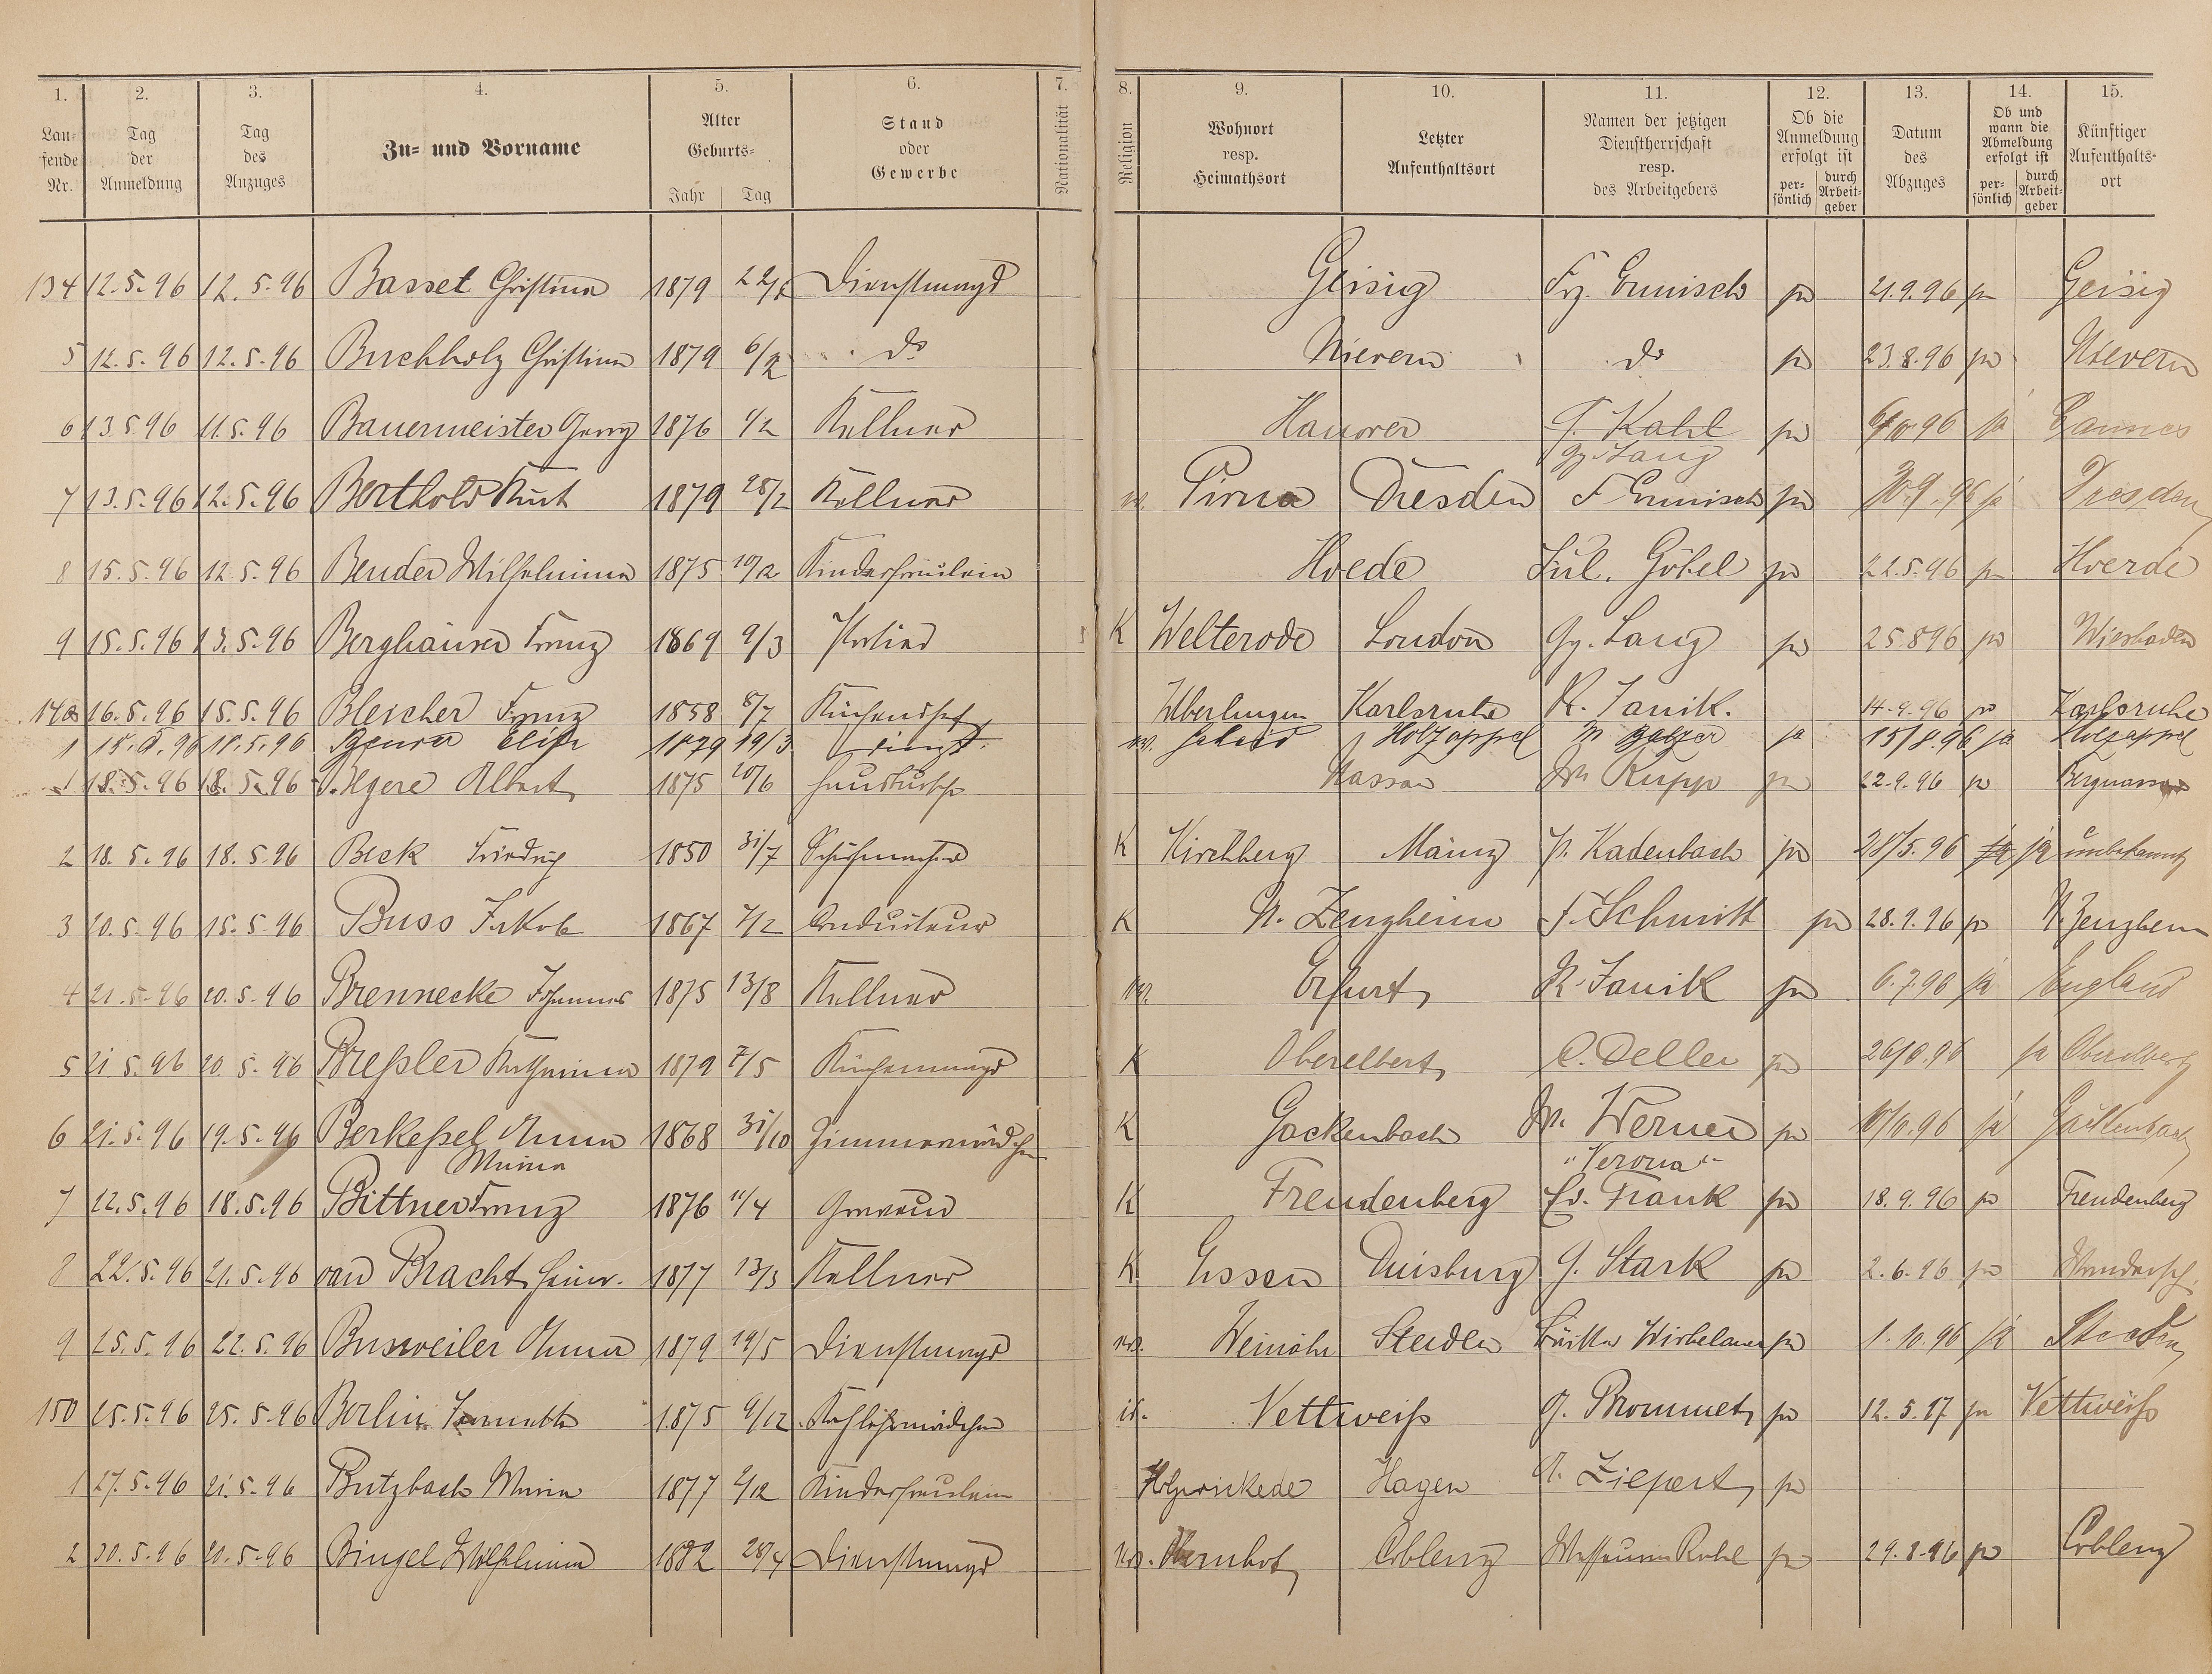 1. 2. 3. 4. 5. 6. 7. 8. 9. 10. 11. 12. 13. 14. 15.
Lau-
fende
Nr.
Tag
der
Anmeldung
Tag
des
Anzuges
Zu- und Vorname
Alter
Geburts-
Jahr Tag
Stand
oder
Gewerbe
Nationalität
Religion
Wohnort
resp.
Heimathsort
Letzter
Aufenthaltsort
Namen der jetzigen
Dienstherrschaft
resp.
des Arbeitgebers
Ob die
Anmeldung
erfolgt ist
per-
sönlich
durch
Arbeit-
geber
Datum
des
Abzuges
Ob und
wann die
Abmeldung
erfolgt ist
per-
sönlich
durch
Arbeit-
geber
Künftiger
Aufenthalts-
ort
134 12.5.96 12.5.96 Basset Christina 1879 Dienstmagd Geisig Frz. Ermisch ja 21.9.96 ja Geisig
5 12.5.96 12.5.96 Buchholz Christina 1879 6/2 do Nievern do ja 23.8.96 ja Nievern
6 13.5.96 11.5.96 Bauermeister Georg 1876 1/2 Kellner Hanover G. Kahl ja 96 ja Cannes
Gg. Lang
7 13.5.96 12.5.96 Berthold Kurt 1879 28/2 Kellner Pirna Dresden F Ermisch ja 30.9.96 ja Dresden
8 15.5.96 12.5.96 Bender Wilhelmina 1875 10/2 Kinderfräulein Hoede Jul. Göbel ja 22.5.96 ja Hoerde
9 15.5.96 13.5.96 Berghäuser Franz 1869 9/3 Portier K Welterode London Gg. Lang ja 25.8.96 ja Wiesbaden
140 16.5.96 15.5.96 Bleicher Franz 1858 8/7 Küchenchef Überlingen Karlsruhe R. Janik. 14.9.96 ja Karlsruhe
1 18.5.96 18.5.96 Elise 1879 19/3 Holzappel ja 15/8.96 ja Holzappel
1 18.5.96 18.5.96 Albert 1875 20/6 Hausbursche Nassau W Rupp ja 22.9.96 ja Bergnassau
2 18.5.96 18.5.96 Beck Friedrich 1850 31/7 Schuhmacher K Kirchberg Mainz P. Kadenbach ja 28/5.96 ja ja unbekannt
3 20.5.96 15.5.96 Buss Jakob 1867 7/2 Conducteur K N. Zeuzheim F. Schmitt ja 28.9.96 ja N. Zeuzheim
4 21.5.96 20.5.96 Brennecke Johannes 1875 13/8 Kellner Erfurt R Janik ja 6.7.96 ja England
5 21.5.96 20.5.96 Breßler Katharina 1879 7/5 Küchenmagd K Oberelbert C. Deller ja 96 ja Oberelbert
6 21.5.96 19.5.96 Berkeßel Anna 1868 31/10 Zimmermädchen K Gackenbach W. Werner ja 10/10.96 ja Gackenbach
Maria "Verona"
7 12.5.96 18.5.96 Bittner Franz 1876 11/4 Graveur K Freudenberg Ed. Frank ja 18.9.96 ja Freudenberg
8 22.5.96 21.5.96 van Bracht Heinr. 1877 13/3 Kellner K Essen Duisburg G. Stark ja 2.6.96 ja Wandersch.
9 25.5.96 22.5.96 Busweiler Anna 1879 19/5 Dienstmagd Weinähr Steeden Wirbelauer ja 1.10.96 ja Steeden
150 25.5.96 25.5.96 Berlin Jeanette 1875 9/12 Kochlehrmädchen is. Vettweiß G. Brommet ja 12.5.97 ja Vettweiß
1 27.5.96 21.5.96 Butzbach Maria 1877 2/12 Kinderfräulein Holzwickede Hagen A. Ziepert ja
2 30.5.96 20.5.96 Bingel Wilhelmina 1882 28/4 Dienstmagd Obernhof Coblenz ja 29.8.96 ja Coblenz